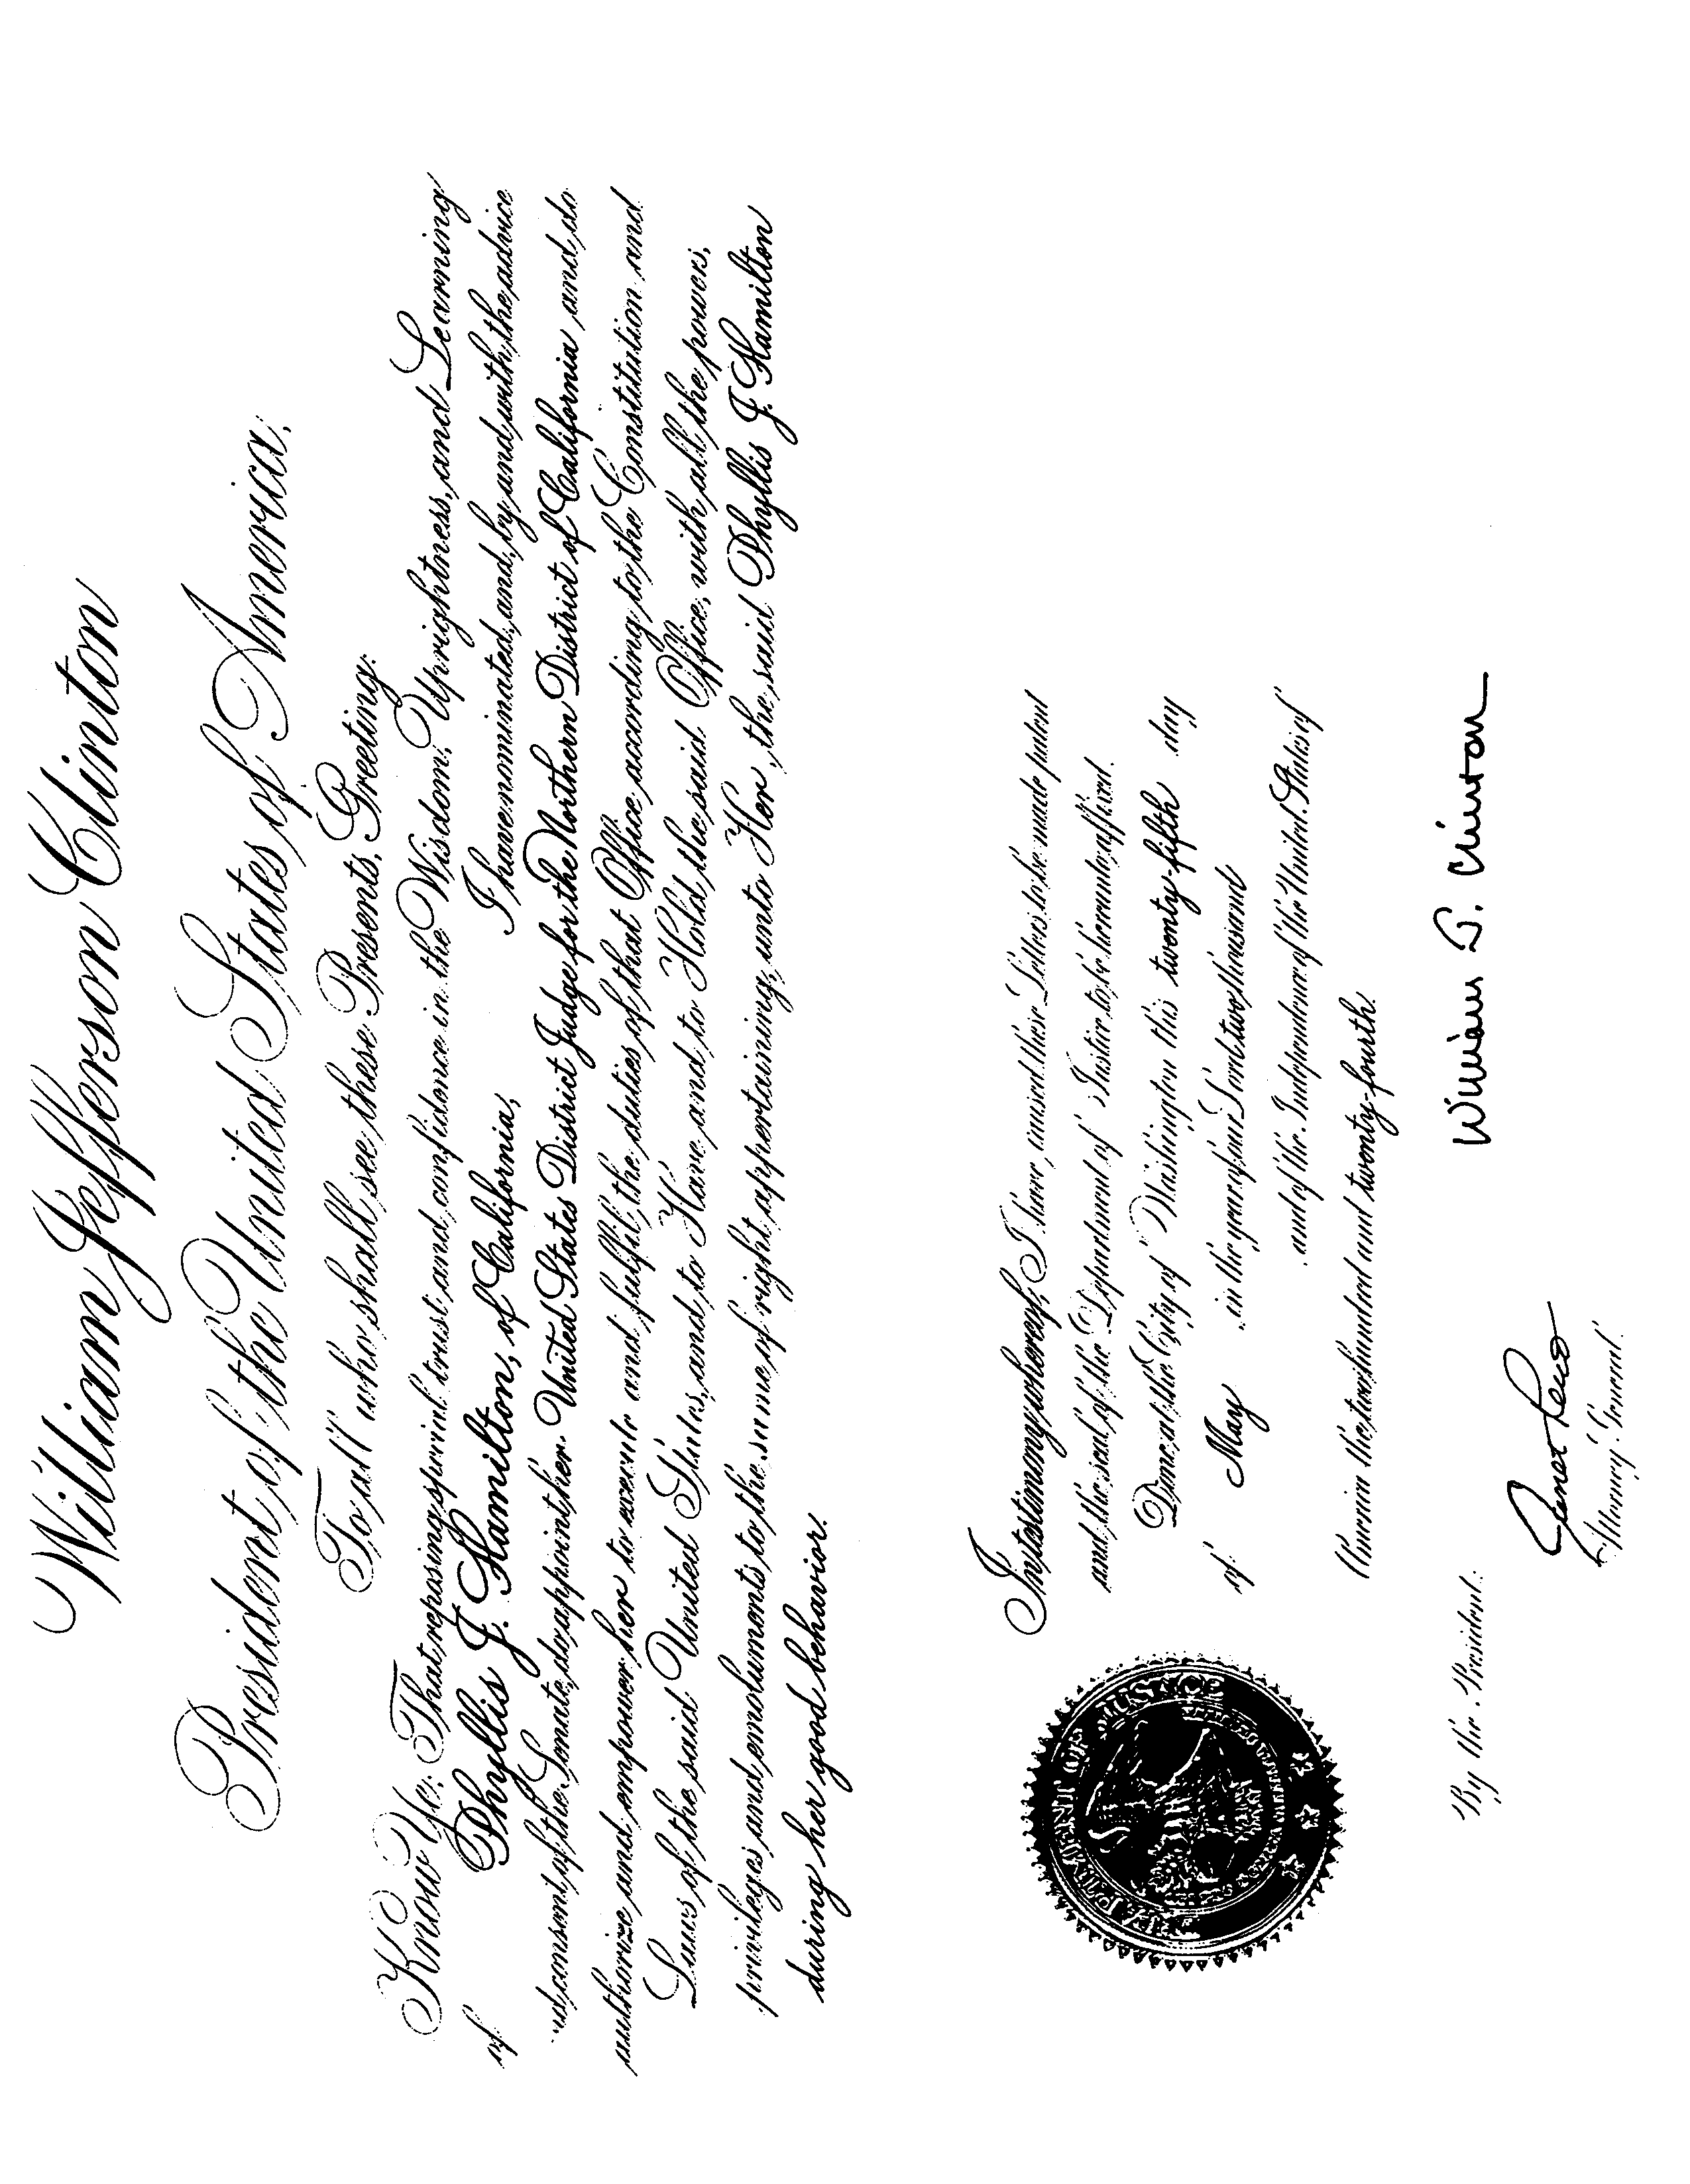 William Jefferson Clinton
President of the United States of America,
To all who shall see these Presents, Greeting:
Know Ye: That reposing special trust and confidence in the Wisdom, Uprightness, and Learning
of Phyllis J. Hamilton, of California, I have nominated, and, by and with the advice
and consent of the Senate, do appoint her United States District Judge for the Northern District of California and do
authorize and empower her to execute and fulfil the duties of that Office according to the Constitution and
Laws of the said United States, and to Have and to Hold the said Office, with all the powers,
privileges and emoluments to the same of right appertaining, unto Her, the said Phyllis J. Hamilton
during her good behavior.
In testimony whereof, I have caused these Letters to be made patent
and the seal of the Department of Justice to be hereunto affixed.
Done at the City of Washington this twenty-fifth day
of May in the year of our Lord two thousand
and of the Independence of the United States of
America the two hundred and twenty-fourth.
DEPARTMENT OF JUSTICE
William J. Clinton
By the President:
Janet Reno
Attorney General.